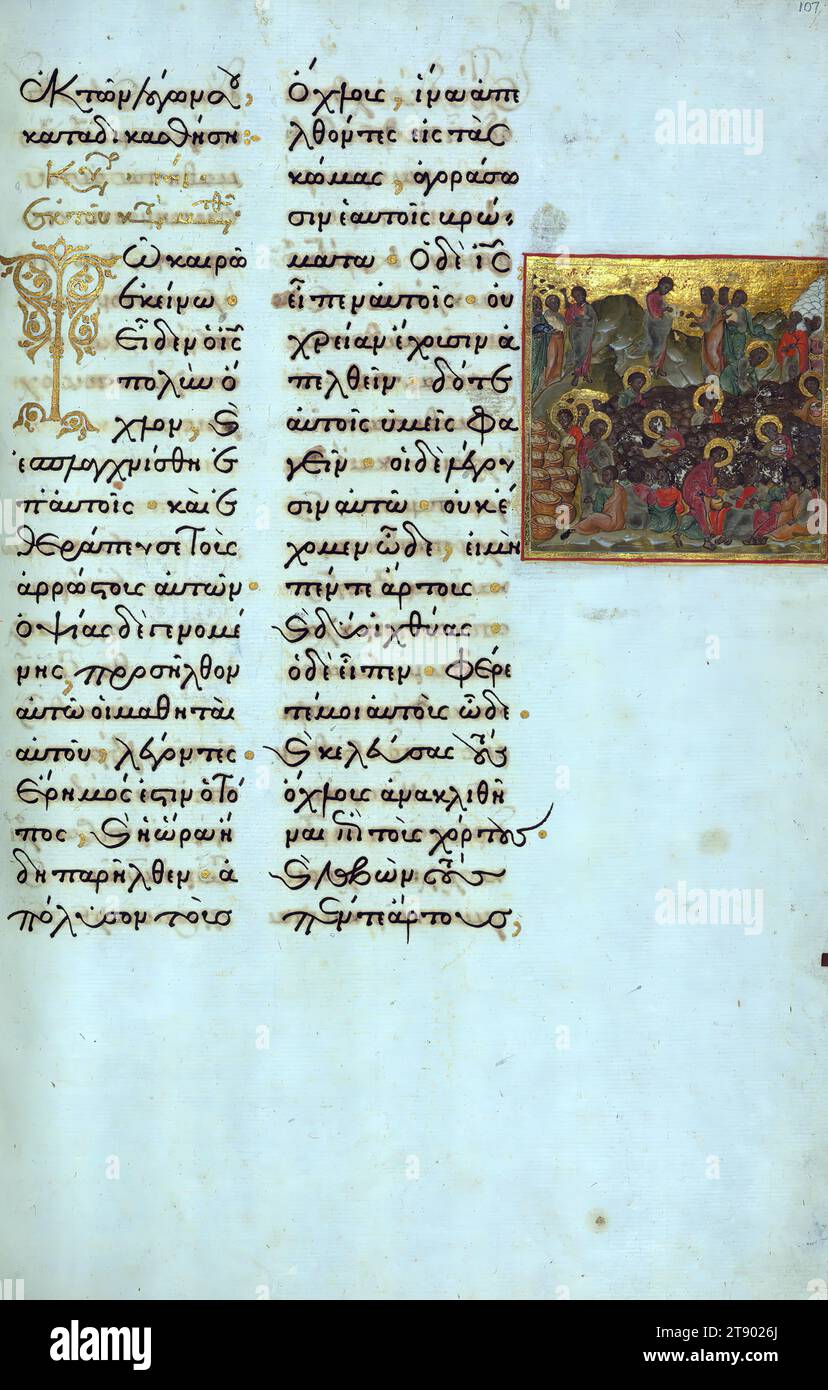 107
ἐκ τῶν λόγων σου,
καταδικασθήσῃ:
Τῷ καιρῷ
ἐκείνῳ
εἶδεν ὁ ις
πολὺν ὄ
χλον, ϗ
ἐσπλαγχνίσθη ἐ
π' αὐτοῖς· καὶ ἐ
θεράπευσε τοὺς
ἀρρώστους αὐτῶν·
ὀψίας δὲ γενομέ
νης, προσῆλθον
αὐτῷ οἱ μαθηταὶ
αὐτοῦ, λέγοντες·
ἔρημός ἐστιν ὁ τό
πος, ϗ ἡ ὥρα ἤ
δη παρῆλθεν· ἀ
πόλυσον τοὺς
ὄχλους, ἵνα ἀπε
λθόντες εἰς τὰς
κώμας, ἀγοράσω
σιν ἑαυτοῖς βρώ
ματα· ὁ δὲ ις
εἶπεν αὐτοῖς· οὐ
χρείαν ἔχουσιν ἀ
πελθεῖν· δότε
αὐτοῖς ὑμεῖς φα
γεῖν· οἱ δὲ λέγου
σιν αὐτῷ· οὐκ ἔ
χομεν ὧδε, εἰ μὴ
πέντε ἄρτους
ϗ δύο ἰχθύας·
ὁ δὲ εἶπεν· φέρε
τέ μοι αὐτοὺς ὧδε·
ϗ κελεύσας τοὺς
ὄχλους ἀνακλιθῆ
ναι ἐπὶ τοὺς χόρτους·
ϗ λαβὼν τοὺς
πέντε ἄρτους,
alamy
Image ID: 2T9026J
www.alamy.com